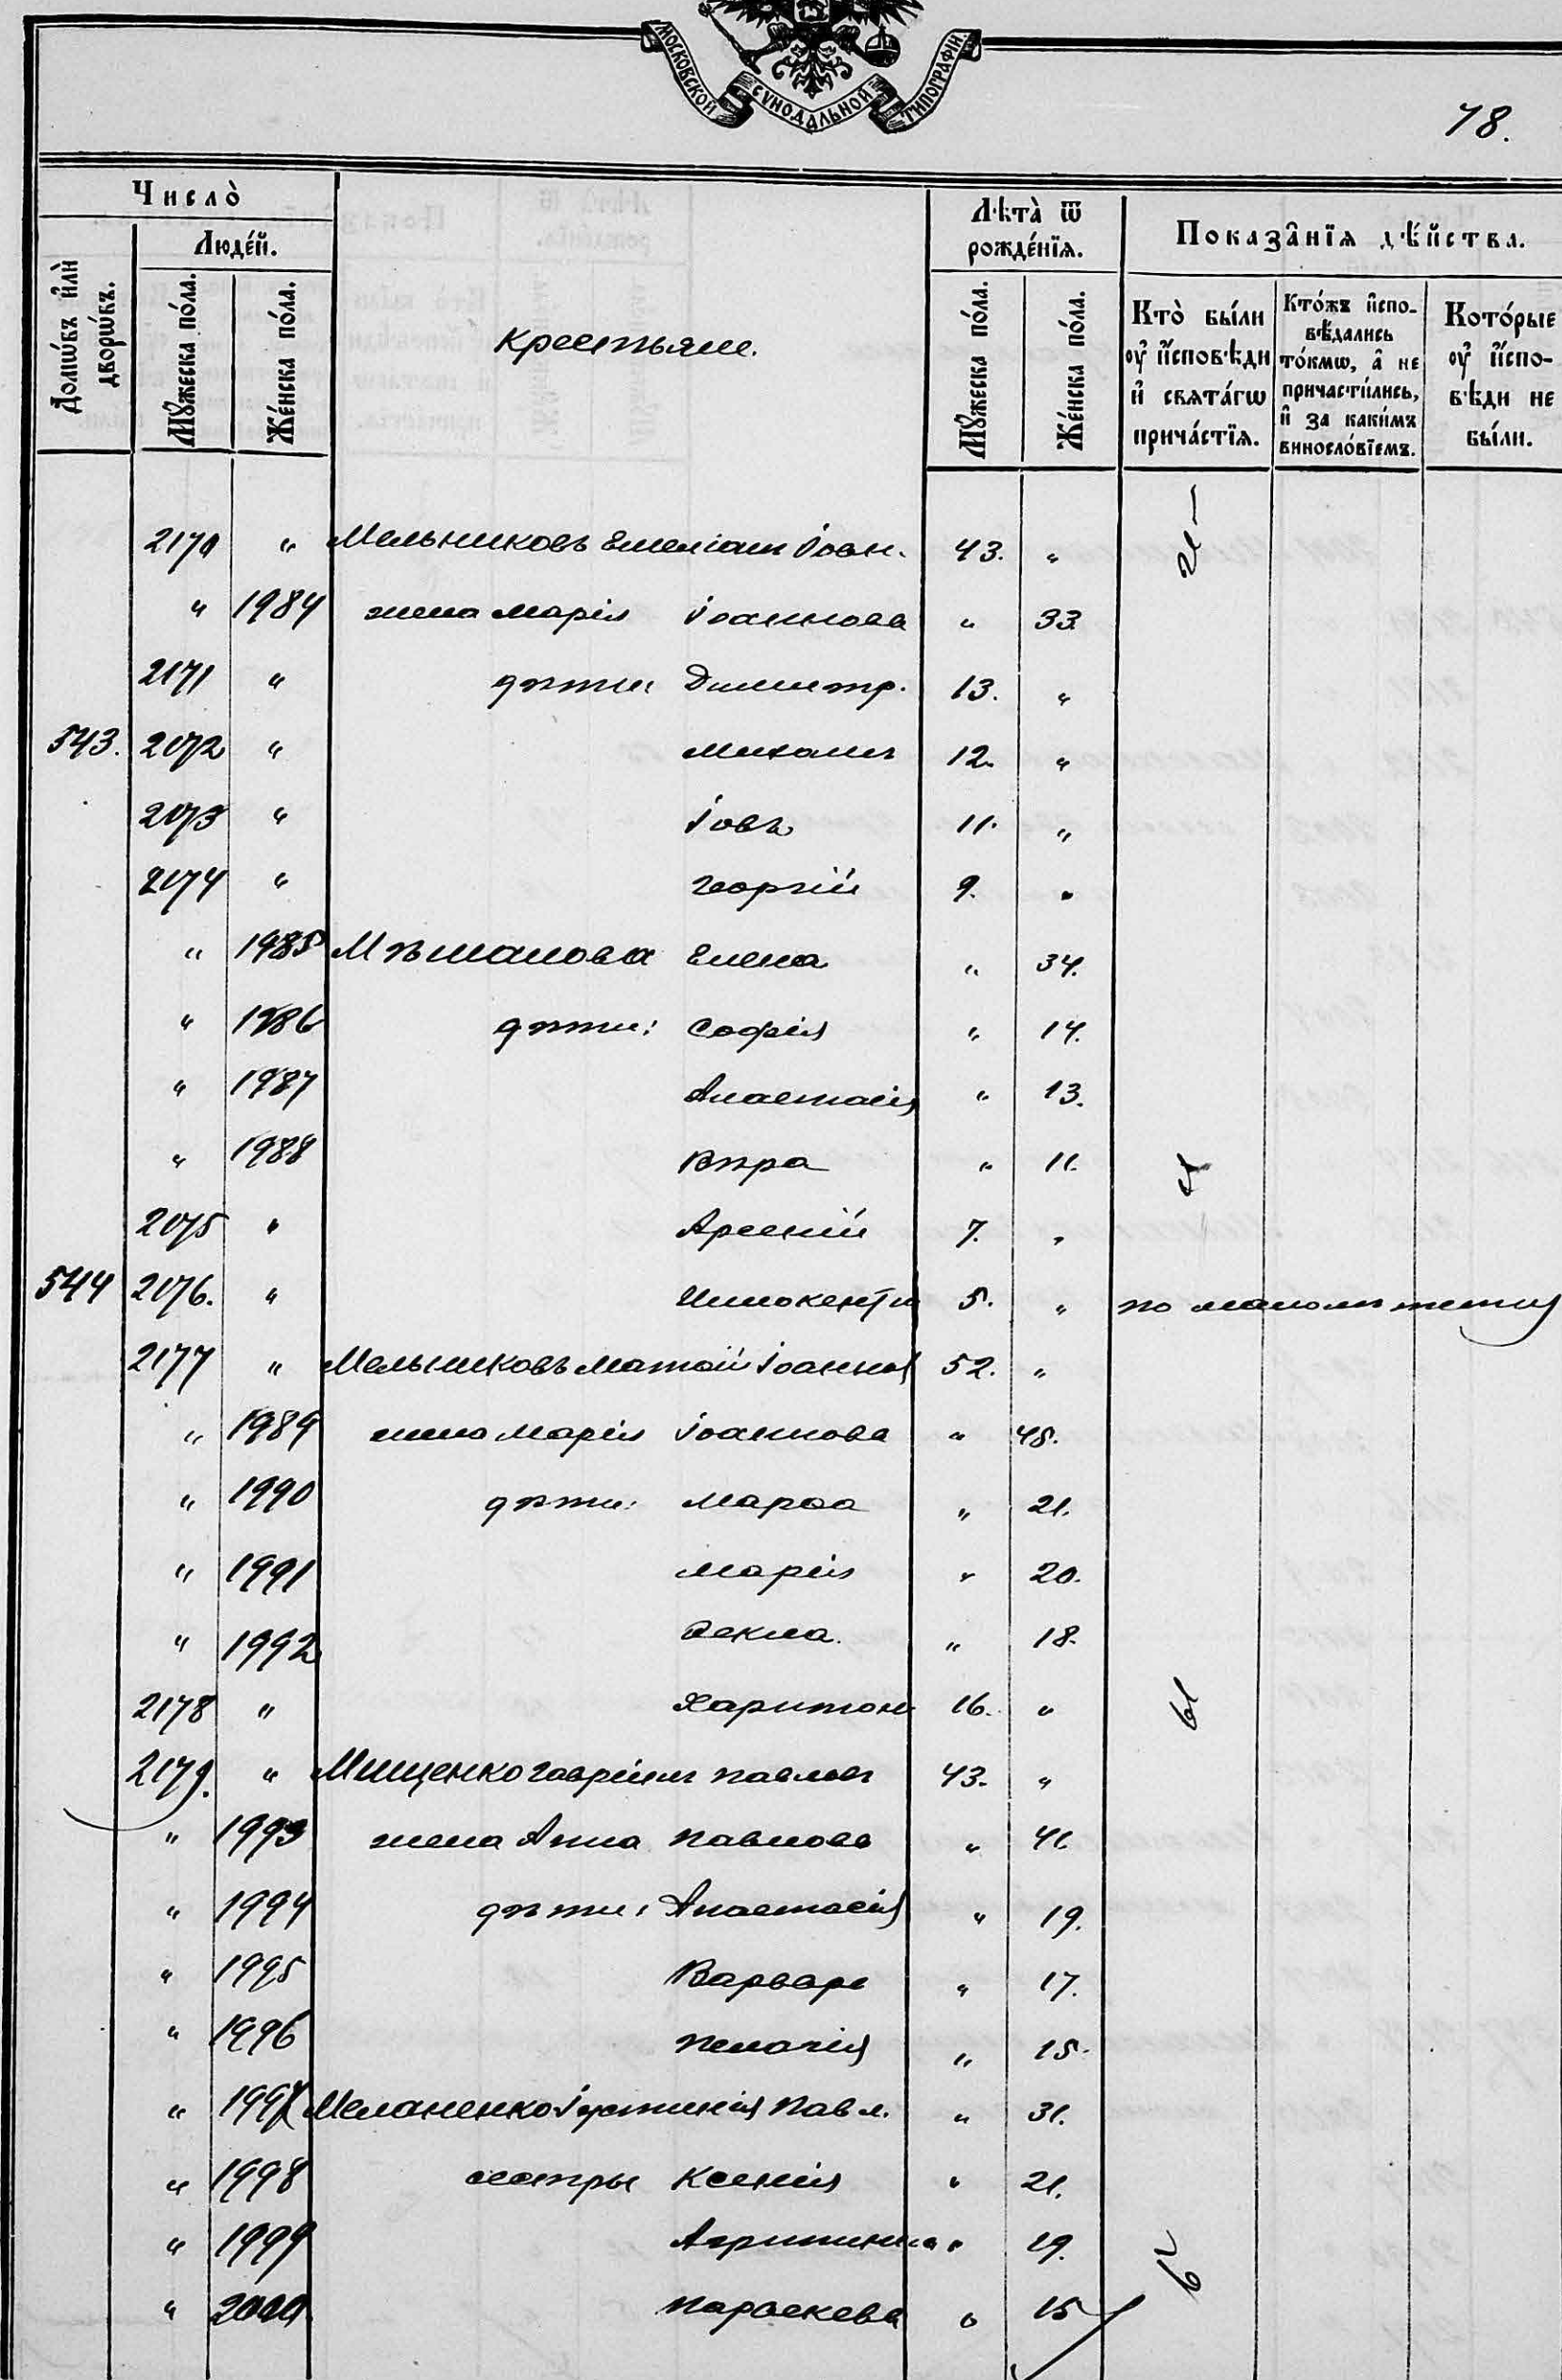 МОСКОВСКОЙ СѴНОДАЛЬНОЙ ТИПОГРАФІИ.
78.
Число̀
Людéй.
Домѡ́въ и҆лѝ дворѡ́въ.
Мꙋ́жеска по́ла.
Же́нска по́ла.
Крестьяне.
Лѣ́та ѿ рожде́нїѧ.
Мꙋ́жеска по́ла.
Же́нска по́ла.
Показа̂нїѧ дѣ́йства.
Кто̀ бы́ли оу҆ и҆́сповѣди и҆ свѧта́гѡ прича́стїѧ.
Кто́жъ и҆спо-вѣ́дались то́кмѡ, а҆ не причасти́лись, и҆ за каки́мъ винослóвїемъ.
Кото́рые оу҆ и҆́спо-вѣди не бы́ли.
2170 " Мельниковъ Емеліан Іоан. 43. "
" 1984 жена Марія Іоаннова " 33
2171 " дѣти: Димитр. 13. "
543. 2072 " Михаил 12. "
2073 " Іовъ 11. "
2074 " Георгій 9. "
" 1985 Мѣшанова Елена " 34.
" 1986 дѣти: Софія " 14.
" 1987 Анастасія " 13.
" 1988 Вѣра " 11.
2075 " Арсеній 7. "
544 2076. " Иннокентій 5. " по малолѣтству
2177 " Мельниковъ Матѳій Іоаннов 52. "
" 1989 жена Марія Іоаннова " 48.
" 1990 дѣти: Марѳа " 21.
" 1991 Марія " 20.
" 1992 Ѳекла. " 18.
2178 " Харитон 16. "
2179. " Мищенко Гавріил Павлов 43. "
" 1993 жена Анна Павлова " 41
" 1994 дѣти: Анастасія " 19.
" 1995 Варвара " 17.
" 1996 Пелагія " 15.
" 1997 Меланенко Іустинія Павл. " 31.
" 1998 сестры Ксенія " 21.
" 1999 Агрипина " 19.
" 2000 Параскева " 15
бы ли